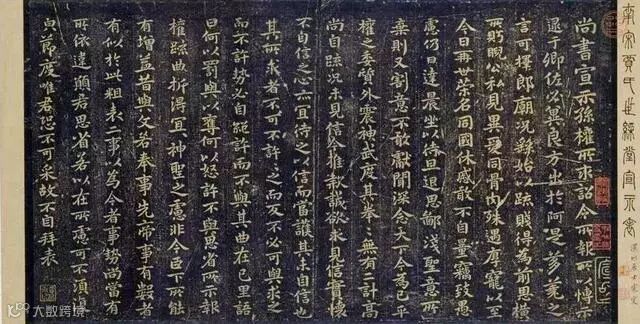 南宋賈氏世綵堂宣示表
尚書宣示孫權所求詔令所報所以博示
逮于卿佐必冀良方出於阿是芻蕘之
言可擇郎廟況繇始以疏賤得為前恩橫
所盻睨公私見異愛同骨肉殊遇厚寵以至
今日再世榮名同國休慼敢不自量竊致愚
慮仍日達晨坐以待旦退思鄙淺聖意所
棄則又割意不敢獻聞深念天下今為已平
權之委質外震神武度其拳拳無有二計高
尚自疏況未見信今推款誠欲求見信實懷
不自信之心亦宜待之以信而當護其未自信也
其所求者不可不許許之而反不必可與求之
而不許勢必自絕許而不與其曲在己里語
曰何以罰與以奪何以怒許不與思省所示報
權疏曲折得宜宜神聖之慮非今臣下所能
有增益昔與文若奉事先帝事有數者
有似於此粗表二事以為今者事勢尚當有
所依違願君思省若以在所慮可不須自
白節度唯君恐不可采故不自拜表
大数跨境